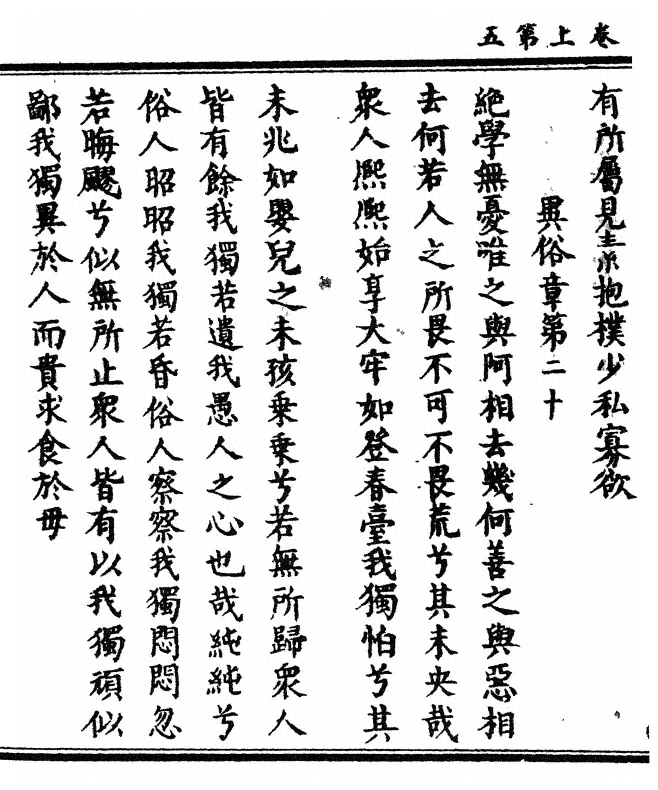 卷上第五
有所屬見素抱樸少私寡欲
異俗章第二十
絶學無憂唯之與阿相去幾何善之與惡相
去何若人之所畏不可不畏荒兮其未央哉
衆人熈熈如享大牢如登春臺我獨怕兮其
未兆如嬰兒之未孩乗乗兮若無所歸衆人
皆有餘我獨若遺我愚人之心也哉純純兮
俗人昭昭我獨若昏俗人察察我獨悶悶忽
若晦飂兮似無所止衆人皆有以我獨頑似
鄙我獨異於人而貴求食於母